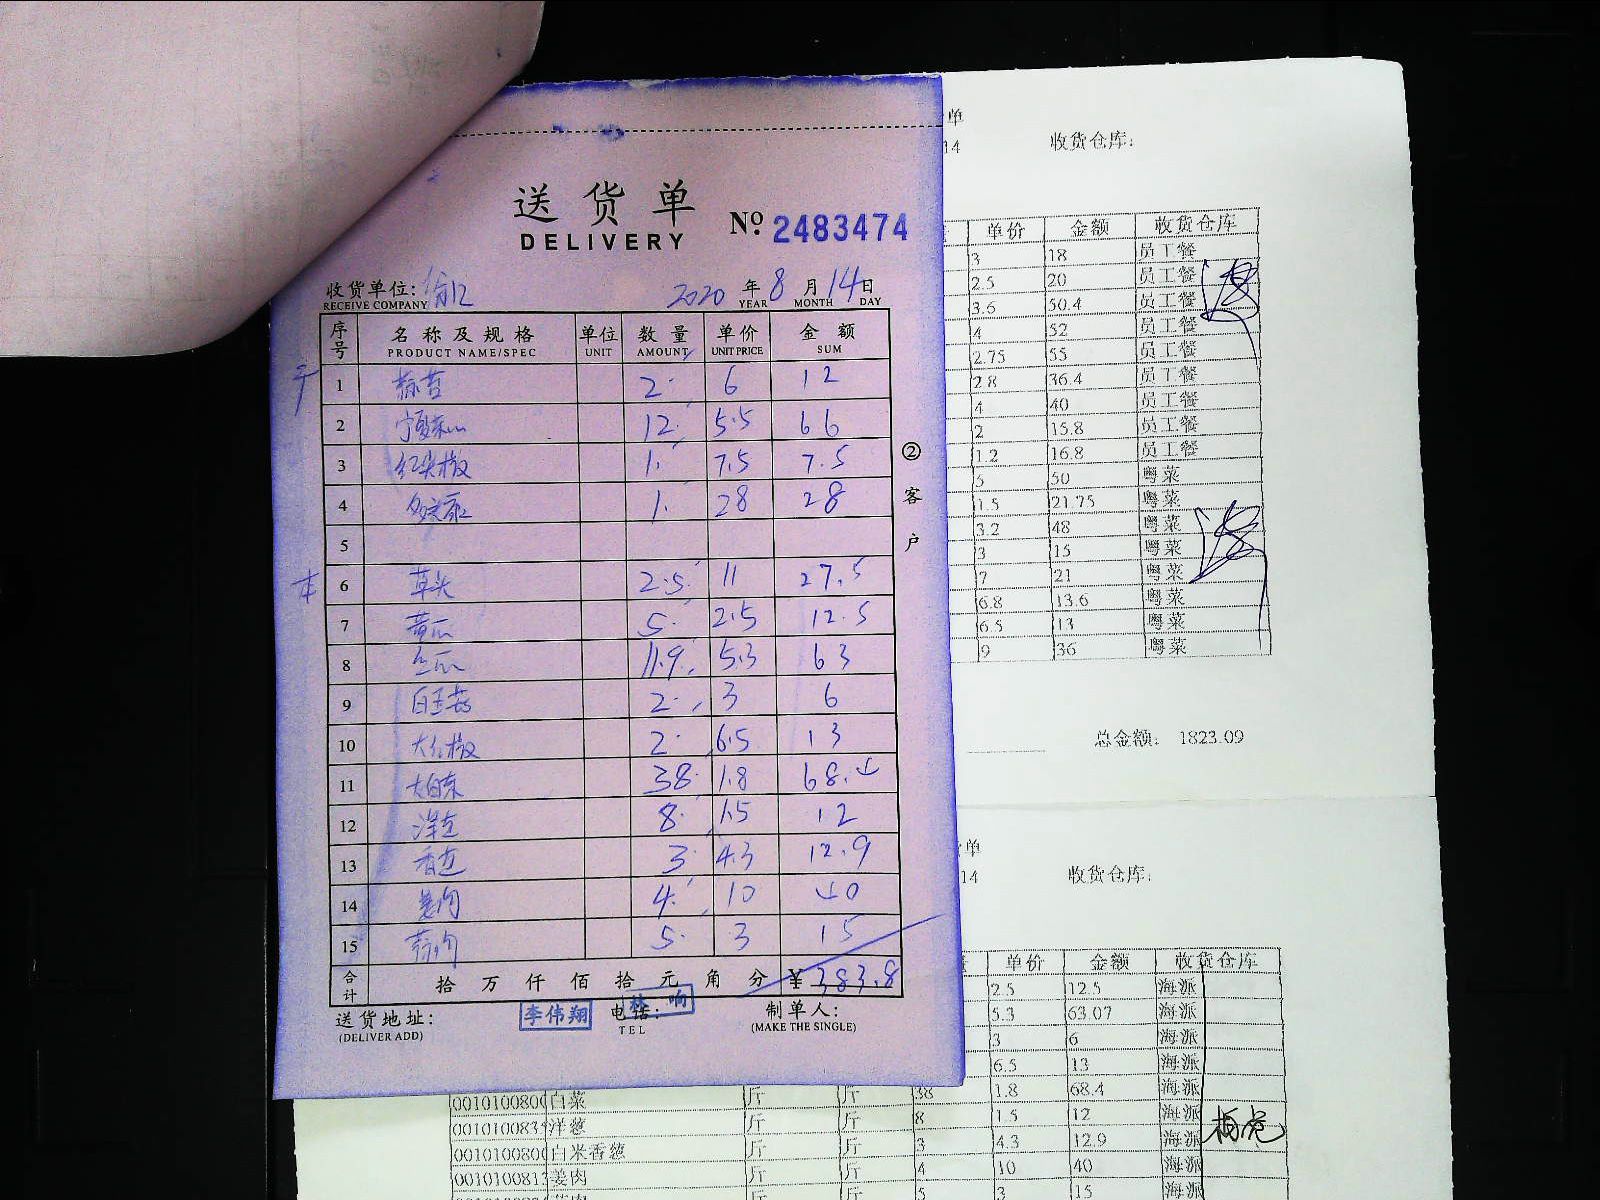 送货单
DELIVERY
No 2483474
收货单位:
RECEIVE COMPANY
2020 年 8 月 14 日
YEAR MONTH DAY
序号 名称及规格 单位 数量 单价 金额
PRODUCT NAME/SPEC UNIT AMOUNT UNIT PRICE SUM
1 2 6 12
2 12 5.5 66
3 红尖椒 1 7.5 7.5
4 1 28 28
5
本
6 草头 2.5 11 27.5
7 黄瓜 5 2.5 12.5
8 丝瓜 11.9 5.3 63
9 2 3 6
10 大红椒 2 6.5 13
11 大白菜 38 1.8 68.4
12 洋葱 8 1.5 12
13 香葱 3 4.3 12.9
14 姜肉 4 10 40
15 5 3 15
合计 拾 万 仟 佰 拾 元 角 分 ¥383.8
送货地址:
(DELIVER ADD)
李伟翔
电话:
TEL
制单人:
(MAKE THE SINGLE)
②客户
单
14 收货仓库:
单价 金额 收货仓库
3 18 员工餐
2.5 20 员工餐
3.6 50.4 员工餐
4 52 员工餐
2.75 55 员工餐
2.8 36.4 员工餐
4 40 员工餐
2 15.8 员工餐
1.2 16.8 员工餐
5 50 粤菜
1.5 21.75 粤菜
3.2 48 粤菜
3 15 粤菜
7 21 粤菜
6.8 13.6 粤菜
6.5 13 粤菜
9 36 粤菜
总金额: 1823.09
单
14 收货仓库:
单价 金额 收货仓库
2.5 12.5 海派
5.3 63.07 海派
3 6 海派
6.5 13 海派
白菜 斤 斤 38 1.8 68.4 海派
洋葱 斤 斤 8 1.5 12 海派
白米香葱 斤 斤 3 4.3 12.9 海派
姜肉 斤 斤 4 10 40 海派
斤 斤 5 3 15 海派